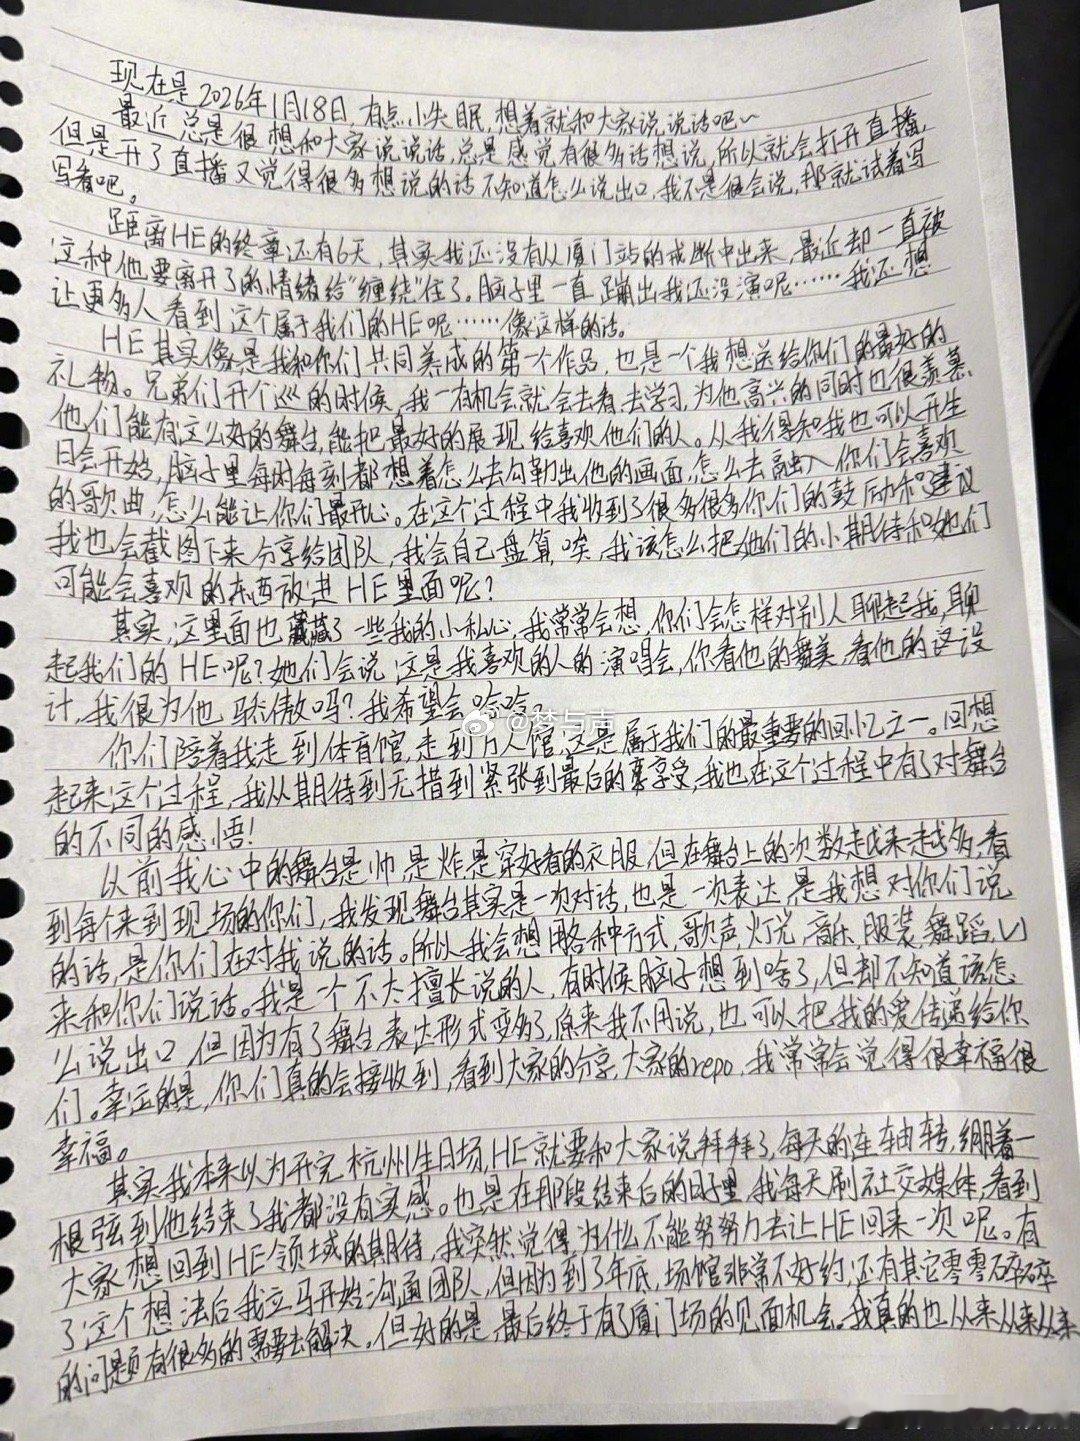 现在是2026年1月18日,有点小失眠,想着就和大家说说话吧~
最近总是很想和大家说说话,总是感觉有很多话想说,所以就会打开直播,
但是开了直播又觉得很多想说的话不知道怎么说出口,我不是很会说,那就试着写
写看吧。
距离HE的终章还有6天,其实我还没有从厦门站的戒断中出来,最近却一直被
这种他要离开了的情绪给"缠绕"住了。脑子里一直蹦出我还没演呢……我还想
让更多人看到这个属于我们的HE呢……像这样的话。
HE其实像是我和你们共同养成的第一个作品,也是一个我想送给你们的最好的
礼物。兄弟们开个巡的时候,我一有机会就会去看,去学习,为他高兴的同时也很羡慕,
他们能有这么好的舞台,能把最好的展现给喜欢他们的人。从我得知我也可以开生
日会开始,脑子里每时每刻都想着怎么去勾勒出他的画面,怎么去融入你们会喜欢
的歌曲,怎么能让你们最开心。在这个过程中我收到了很多很多你们的鼓励和建议
我也会截图下来分享给团队,我会自己盘算,唉,我该怎么把她们的小期待和她们
可能会喜欢的东西放进HE里面呢?
其实,这里面也藏了一些我的小私心,我常常会想,你们会怎样对别人聊起我,聊
起我们的HE呢?她们会说,这是我喜欢的人的演唱会,你看他的舞美,看他的这设
计,我很为他骄傲吗?我希望会哈哈。
@梦与声
你们陪着我走到体育馆,走到万人馆,这是属于我们的最重要的回忆之一。回想
起来这个过程,我从期待到无措到紧张到最后的享受,我也在这个过程中有了对舞台
的不同的感悟!
以前我心中的舞台是帅是炸是穿好看的衣服,但在舞台上的次数越来越多,看
到每个来到现场的你们,我发现舞台其实是一次对话,也是一次表达,是我想对你们说
的话,是你们在对我说的话。所以我会想用各种方式,歌声,灯光,音乐,服装,舞蹈,VJ
来和你们说话。我是一个不太擅长说的人,有时候脑子想到啥了,但却不知道该怎
么说出口,但因为有了舞台,表达形式变多了,原来我不用说,也可以把我的爱传递给你
们。幸运的是,你们真的会接收到,看到大家的分享,大家的repo,我常常会觉得很幸福很
幸福。
其实我本来以为开完杭州生日场,HE就要和大家说拜拜了,每天的连轴转,绷着一
根弦到他结束了我都没有实感。也是在那段结束后的日子里,我每天刷社交媒体,看到
大家想回到HE领域的期待,我突然觉得为什么不能努努力去让HE回来一次呢。有
了这个想法后我立马开始沟通团队,但因为到了年底,场馆非常不好约,还有其它零零碎碎
的问题有很多的需要去解决,但好的是,最后终于有了厦门场的见面机会。我真的也从来从来从来